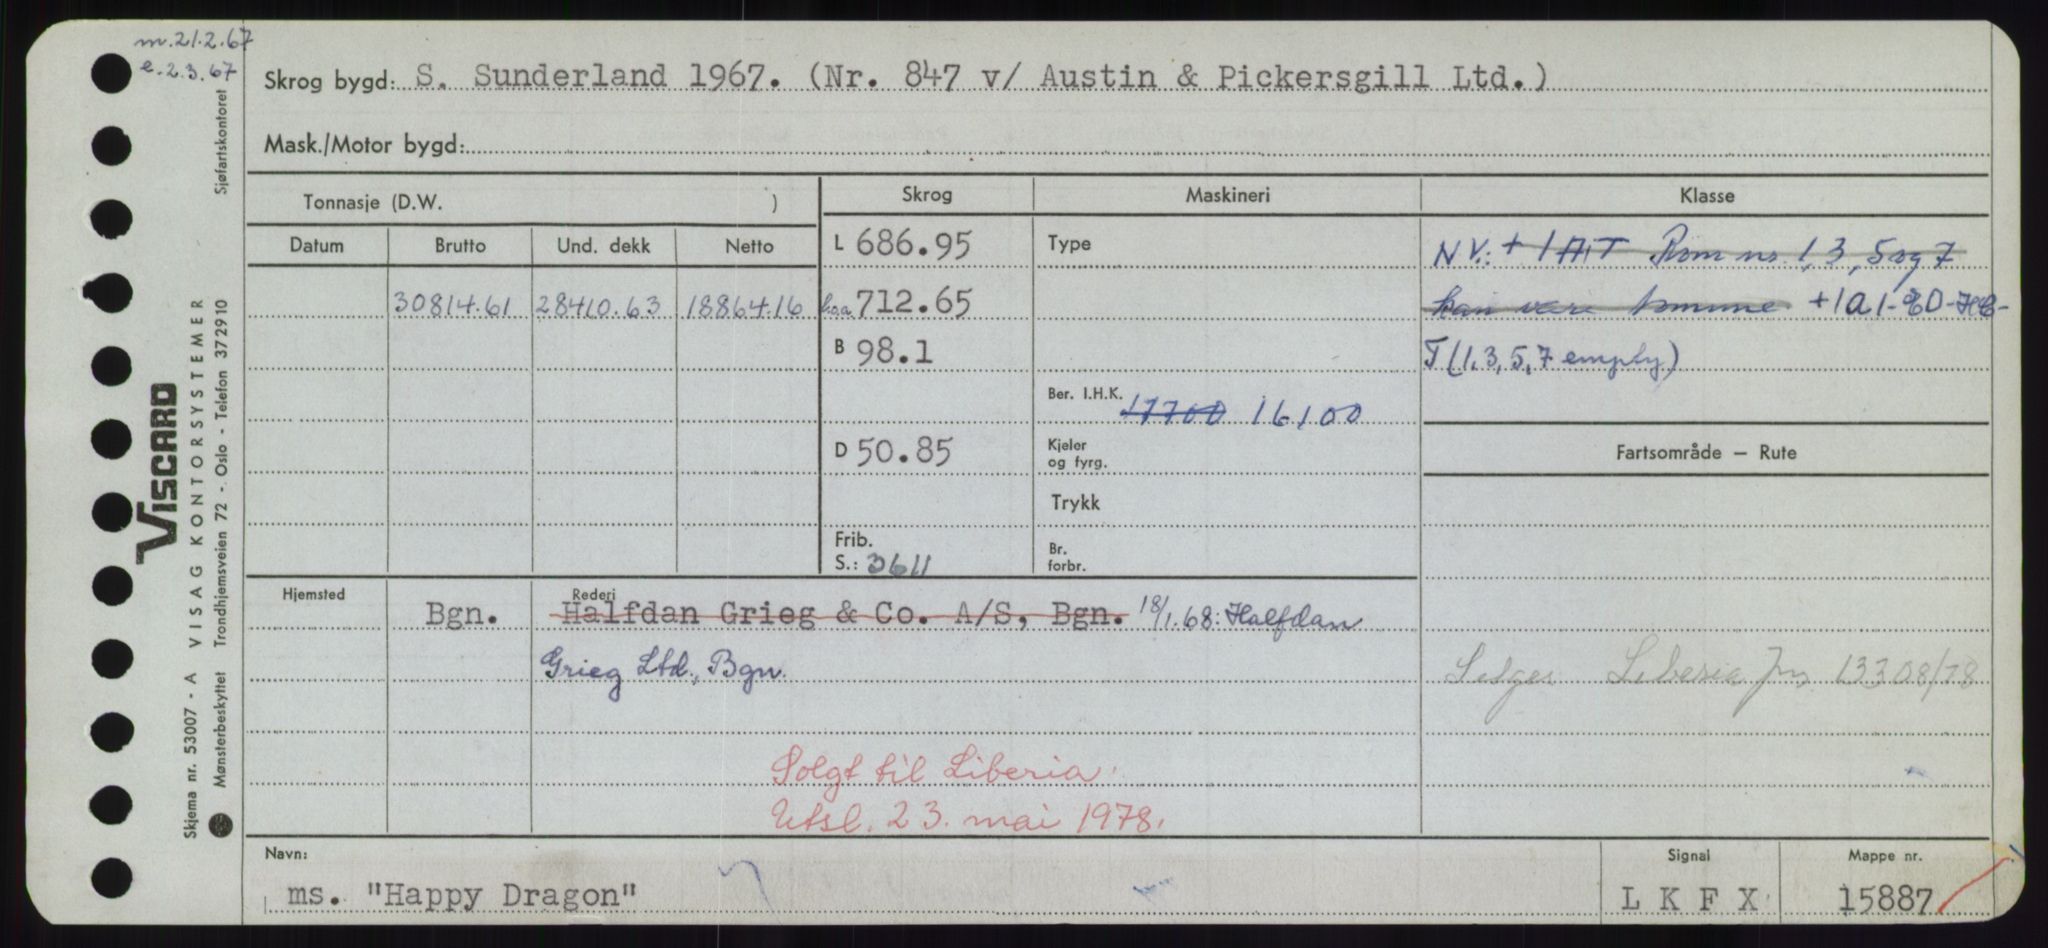 m. 21.2.67
e. 2.3.67
Skrog bygd: S. Sunderland 1967. (Nr. 847 v/ Austin & Pickersgill Ltd.)
Mask./Motor bygd:
Tonnasje (D.W. )
Skrog
Maskineri
Klasse
Datum
Brutto
Und. dekk
Netto
L 686.95
Type
NV.: + 1A1T Rom nr. 1,3,5 og 7
30814.61 28410.63 18864.16
L.o.a. 712.65
kan være tomme +1A1-
T (1,3,5,7 empty)
B 98.1
Ber. I.H.K. 17700 16100
D 50.85
Kjeler
og fyrg.
Fartsområde – Rute
Trykk
Frib.
S.: 3611
Br.
forbr.
Hjemsted
Bgn.
Rederi
Halfdan Grieg & Co. A/S, Bgn. 18/1.68: Halfdan
Grieg Ltd., Bgn.
Selges Liberia Jnr 13308/78
Solgt til Liberia.
Utsl. 23. mai 1978.
Navn:
ms. "Happy Dragon"
Signal
L K F X
Mappe nr.
15887
VISCARD
Skjema nr. 53007 - A VISAG KONTORSYSTEMER
Mønsterbeskyttet Trondhjemsveien 72 - Oslo - Telefon 372910 Sjøfartskontoret